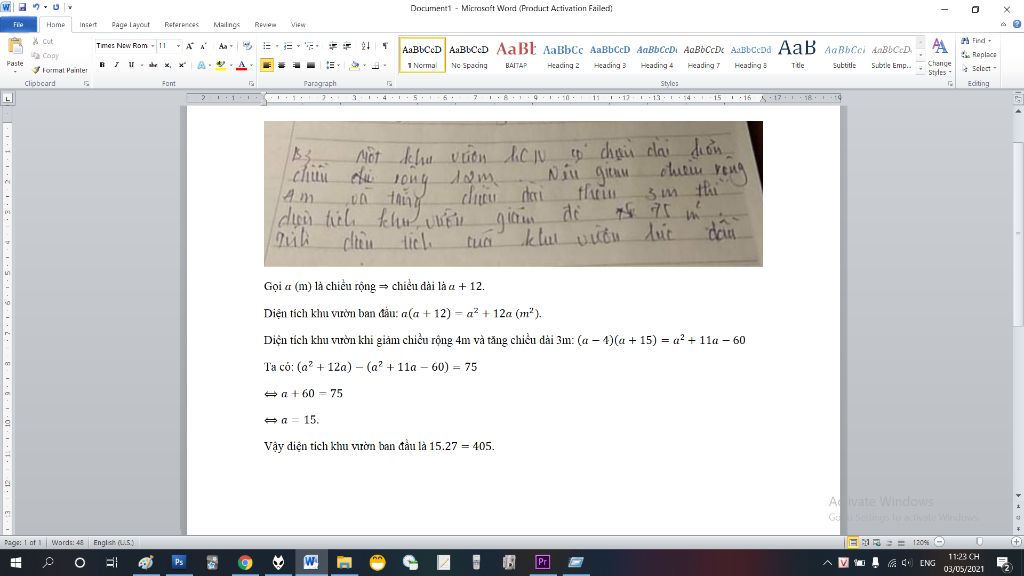 Document1 - Microsoft Word (Product Activation Failed)
File Home Insert Page Layout References Mailings Review View
Paste
Cut
Copy
Format Painter
Clipboard
Times New Rom 11
Font
Paragraph
AaBbCcD AaBbCcD AaBb AaBbCc AaBbCcD AaBbCcD AaBbCcD AaBbCcDd AaB AaBbCc AaBbCcD
¶ Normal No Spacing BAITAP Heading 2 Heading 3 Heading 4 Heading 7 Heading 8 Title Subtitle Subtle Emp...
Styles
Change Styles
Find
Replace
Select
Editing
B3 Một khu vườn hCN có chiều dài hơn
chiều rộng 12m. Nếu giảm chiều rộng
4m và tăng chiều dài thêm 3m thì
diện tích khu vườn giảm đi 75 m².
Tính diện tích của khu vườn lúc đầu
Gọi a (m) là chiều rộng ⇒ chiều dài là a + 12.
Diện tích khu vườn ban đầu: a(a + 12) = a² + 12a (m²).
Diện tích khu vườn khi giảm chiều rộng 4m và tăng chiều dài 3m: (a − 4)(a + 15) = a² + 11a − 60
Ta có: (a² + 12a) − (a² + 11a − 60) = 75
⟺ a + 60 = 75
⟺ a = 15.
Vậy diện tích khu vườn ban đầu là 15.27 = 405.
Activate Windows
Go to Settings to activate Windows.
Page: 1 of 1 Words: 48 English (U.S.)
120%
ENG
11:23 CH
03/05/2021